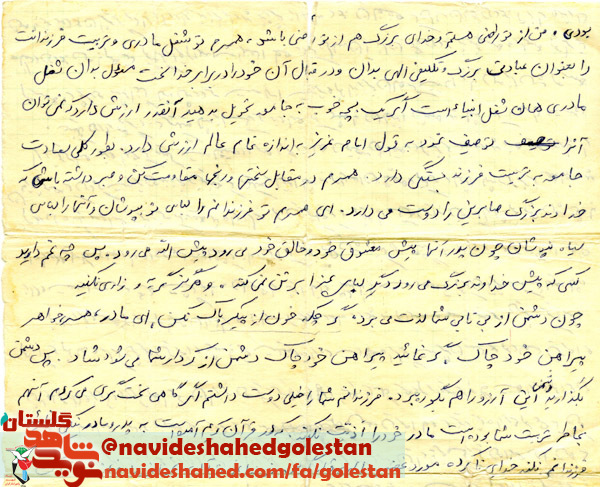 بودی. من از تو راضی هستم و خدای بزرگ هم از تو راضی باشد، همسرم تو شغل مادری و تربیت فرزندانت
را بعنوان عبادتی بزرگ و تکلیفی الهی بدان و در قبال آن خود را در برابر خدا سخت مسئول بدان شغل
مادری همان شغل انبیاء است اگر یک بچه خوب به جامعه تحویل بدهید آنقدر ارزش دارد که نمی‌توان
آنرا توصیف نمود به قول امام عزیز به اندازه تمام عالم ارزش دارد. بطور کلی سعادت
جامعه به تربیت فرزند بستگی دارد. همسرم در مقابل سختی و رنجها مقاومت کن و صبر داشته باش که
خداوند بزرگ صابرین را دوست می دارد. ای همسرم تو فرزندانم را لباس نو بپوشان و آنها را لباس
سیاه نپوشان چون پدر آنها پیش معشوق خود و خالق خود می رود پیش الله می رود. پس چه غم دارید
کسی که پیش خداوند بزرگ می رود دیگر لباس عزا برتن نمی کند. و هرگز گریه و زاری نکنید
چون دشمن از بی تابی شما لذت می برد گر چکد خون از پیکر باک نکن، ای مادر، همسر خواهر
پیراهن خود چاک گر نمائید پیراهن خود چاک دشمن از کردار شما می شود شاد. پس
بگذارید دشمن این آرزو را هم بگور ببرد. فرزندانم شما را خیلی دوست داشتم اگر گاهی سخت گیری می کردم آنهم
بخاطر تربیت شما بوده است مادر خود را اذیت نکنید که در قرآن کریم آمده است به پدر و مادر
فرزندانم نکند خدای نا کرده مورد
نوید شاهد
گلستان
@navideshahedgolestan
navideshahed.com/fa/golestan